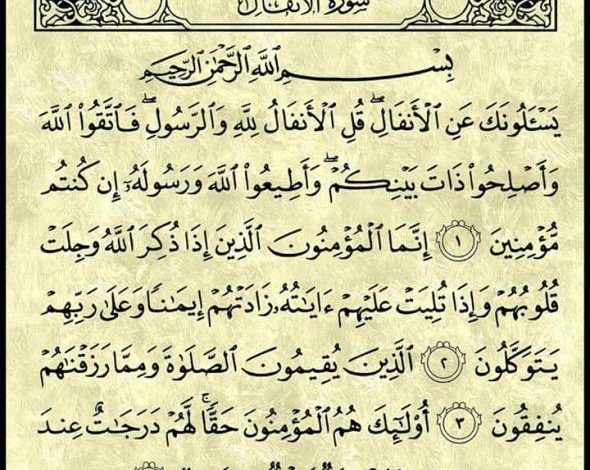 سورة الأنفال
بِسْمِ اللَّهِ الرَّحْمَٰنِ الرَّحِيمِ
يَسْـَٔلُونَكَ عَنِ ٱلْأَنفَالِ ۖ قُلِ ٱلْأَنفَالُ لِلَّهِ وَٱلرَّسُولِ ۖ فَٱتَّقُوا۟ ٱللَّهَ
وَأَصْلِحُوا۟ ذَاتَ بَيْنِكُمْ ۖ وَأَطِيعُوا۟ ٱللَّهَ وَرَسُولَهُۥٓ إِن كُنتُم
مُّؤْمِنِينَ ١ إِنَّمَا ٱلْمُؤْمِنُونَ ٱلَّذِينَ إِذَا ذُكِرَ ٱللَّهُ وَجِلَتْ
قُلُوبُهُمْ وَإِذَا تُلِيَتْ عَلَيْهِمْ ءَايَٰتُهُۥ زَادَتْهُمْ إِيمَٰنًا وَعَلَىٰ رَبِّهِمْ
يَتَوَكَّلُونَ ٢ ٱلَّذِينَ يُقِيمُونَ ٱلصَّلَوٰةَ وَمِمَّا رَزَقْنَٰهُمْ
يُنفِقُونَ ٣ أُو۟لَٰٓئِكَ هُمُ ٱلْمُؤْمِنُونَ حَقًّا ۚ لَّهُمْ دَرَجَٰتٌ عِندَ